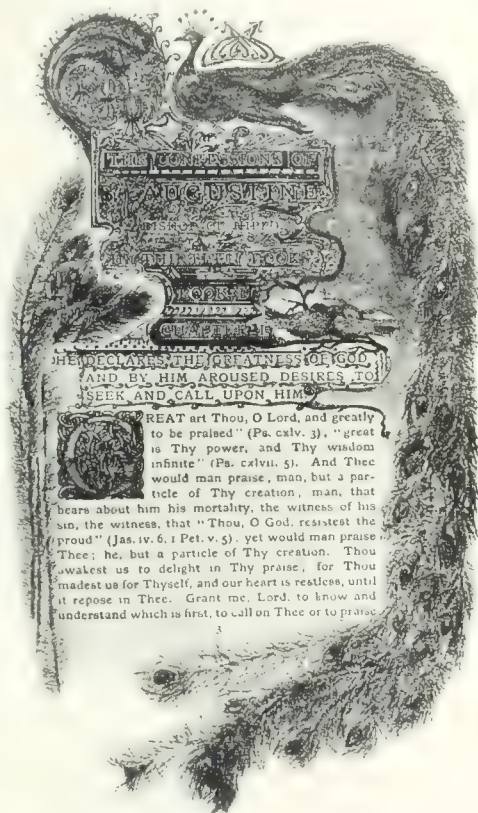 THE CONFESSIONS OF
ST AUGUSTINE
BISHOP OF HIPPO
IN THIRTEEN BOOKS
BOOK I
CHAPTER I
HE DECLARES THE GREATNESS OF GOD,
AND BY HIM AROUSED DESIRES TO
SEEK AND CALL UPON HIM
GREAT art Thou, O Lord, and greatly
to be praised" (Ps. cxlv. 3), "great
is Thy power, and Thy wisdom
infinite" (Ps. cxlvii. 5). And Thee
would man praise, man, but a par-
ticle of Thy creation, man, that
bears about him his mortality, the witness of his
sin, the witness, that "Thou, O God, resistest the
proud" (Jas. iv. 6, 1 Pet. v. 5). yet would man praise
Thee; he, but a particle of Thy creation. Thou
awakest us to delight in Thy praise, for Thou
madest us for Thyself, and our heart is restless, until
it repose in Thee. Grant me, Lord, to know and
understand which is first, to call on Thee or to praise
3